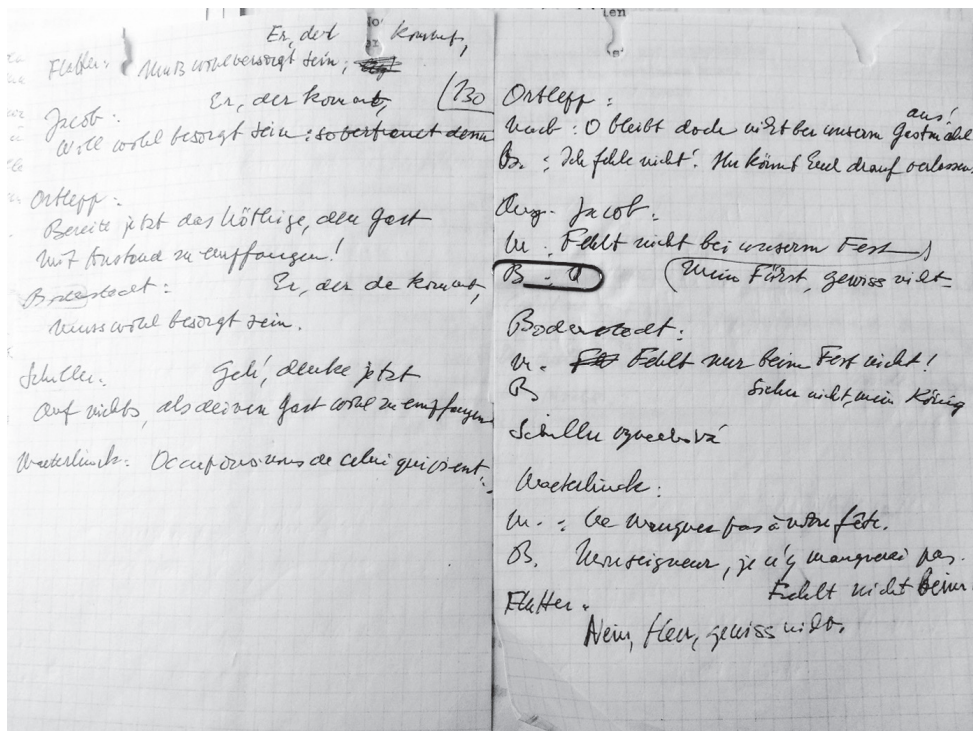 Er, der kommt,
Flatter: Muß wohl besorgt sein;
Er, der kommt, (130
Jacob:
Will wohl besorgt sein: so vertrauet denn
Ortlepp:
Bereite jetzt das Nöthige, den Gast
Mit Anstand zu empfangen!
Bodenstedt: Er, der da kommt,
Muss wohl besorgt sein.
Schiller: Geh', denke jetzt
Auf nichts, als deinen Gast wohl zu empfangen
Maeterlinck: Occupons-nous de celui qui vient:
Ortlepp:
aus!
Macb: O bleibt doch nicht bei unserm Gastmahl
Ba: Ich fehle nicht! Ihr könnt Euch drauf verlassen
Jacob:
M: Fehlt nicht bei unserm Fest
B: (Mein Fürst, gewiss nicht
Bodenstedt:
M. Fehlt nur beim Fest nicht!
B Sicher nicht, mein König
Schiller
Maeterlinck:
M.: Ne manquez pas à notre fête.
B. Monseigneur, je n'y manquerai pas.
Fehlt nicht beim
Flatter:
Nein, Herr, gewiss nicht.